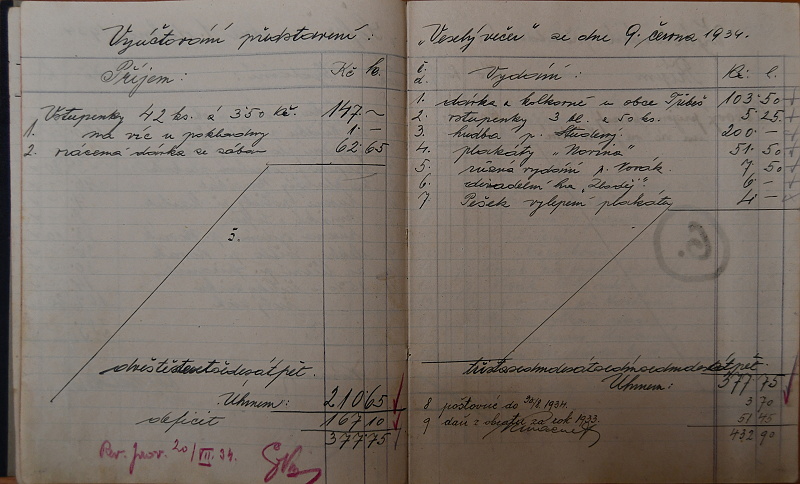 Vyúčtování představení:
Příjem: Kč h.
Vstupenky 42 ks. á 3'50 Kč. 147 ~
1. na víc u pokladny 1 -
2. vrácená dávka ze zábav 62 65
3.
Úhrnem: 210 65
deficit 167 10
377 75
Rev. prov. 20/VII. 34.
„Veselý večer" ze dne 9. června 1934.
č. d. Vydání: Kč. h.
1. dávka a kolkovné u obce Třebeš 103 50
2. vstupenky 3 bl. a 50 ks. 5 25
3. hudba p. 200 -
4. plakáty „Novina" 51 50
5. různá vydání p. Novák. 7 50
6. divadelní hra „Zloděj". 6 -
7. Pešek vylepení plakáty 4 -
6.
Úhrnem: 377 75
8 poštovné do 1934. 3 70
9 daň z obratu za rok 1933. 51 45
432 90